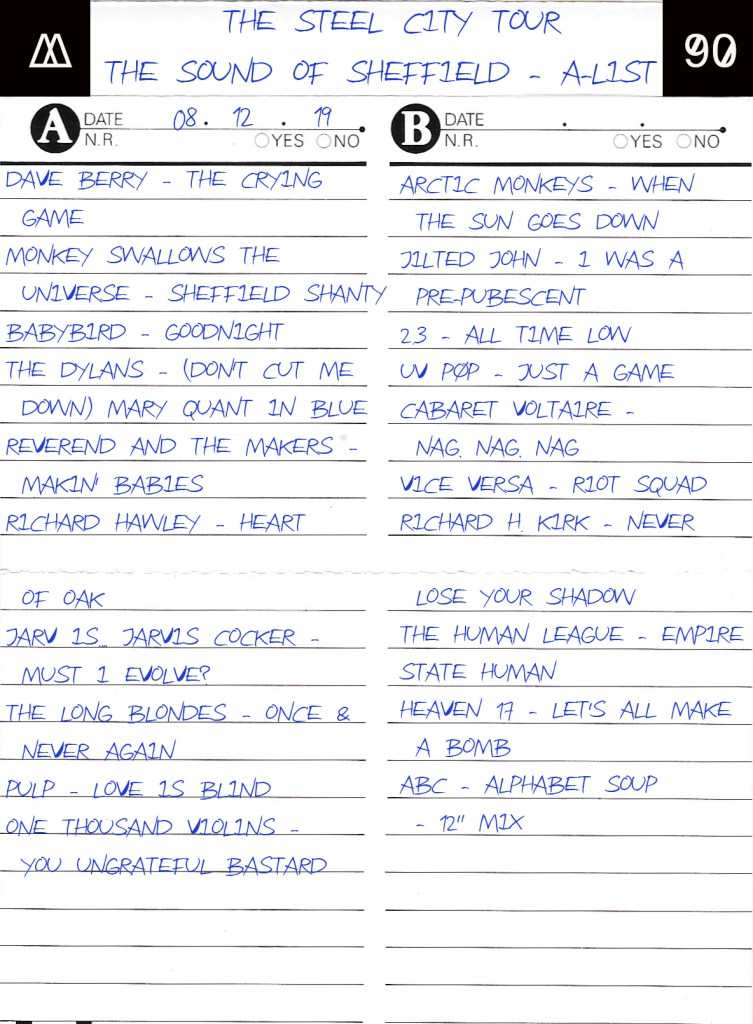 THE STEEL CITY TOUR
THE SOUND OF SHEFFIELD - A-LIST
90
A DATE 08. 12. 19
N.R. YES NO
DAVE BERRY - THE CRYING
GAME
MONKEY SWALLOWS THE
UNIVERSE - SHEFFIELD SHANTY
BABYBIRD - GOODNIGHT
THE DYLANS - (DON'T CUT ME
DOWN) MARY QUANT IN BLUE
REVEREND AND THE MAKERS -
MAKIN' BABIES
RICHARD HAWLEY - HEART
OF OAK
JARV IS... JARVIS COCKER -
MUST I EVOLVE?
THE LONG BLONDES - ONCE &
NEVER AGAIN
PULP - LOVE IS BLIND
ONE THOUSAND VIOLINS -
YOU UNGRATEFUL BASTARD
B DATE . .
N.R. YES NO
ARCTIC MONKEYS - WHEN
THE SUN GOES DOWN
JILTED JOHN - I WAS A
PRE-PUBESCENT
2.3 - ALL TIME LOW
UV PØP - JUST A GAME
CABARET VOLTAIRE -
NAG, NAG, NAG
VICE VERSA - RIOT SQUAD
RICHARD H. KIRK - NEVER
LOSE YOUR SHADOW
THE HUMAN LEAGUE - EMPIRE
STATE HUMAN
HEAVEN 17 - LET'S ALL MAKE
A BOMB
ABC - ALPHABET SOUP
- 12" MIX